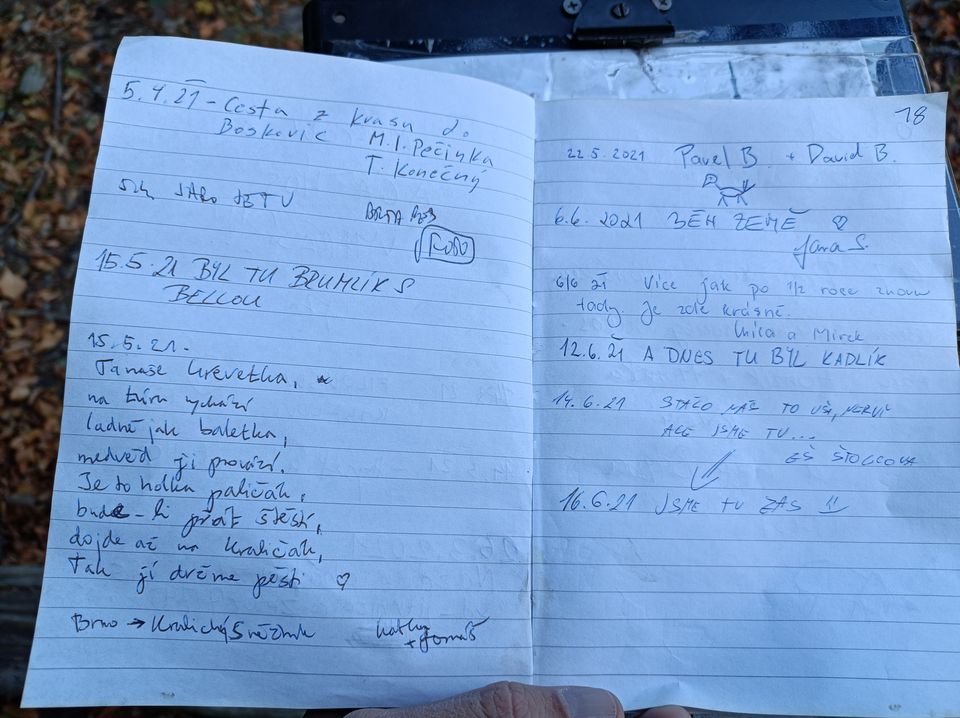 5.4.21 - Cesta z krasu do
Boskovic M.I. Pečinka
T. Konečný
JSTU
ROBO
15.5.21 BYL TU BRUMLÍK S
BELLOU
15.5.21.
Ta naše krevetka,
na túru vychází
ladně jak baletka,
medvěd ji provází.
Je to holka paličák,
bude-li přát štěstí,
dojde až na Kraličák,
Tak jí držme pěsti ♡
Brno → Kralický Sněžník
Katka
+ Tomáš
18
22.5.2021 Pavel B. + David B.
6.6.2021 BĚH ZEMĚ ♡
Jana S.
6/6 21 Více jak po 1/2 roce znovu
tady. Je zde krásně.
a Mirek
12.6.21 A DNES TU BYL KADLÍK
14.6.21 STÁLO NÁS TO UŠI, NERVY
ALE JSME TU...
ZŠ
16.6.21 JSME TU ZAS